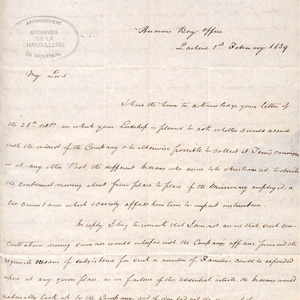 ARCHIDIOCÈSE
ARCHIVES
DE LA
CHANCELLERIE
DE MONTRÉAL
Hudsons Bay Office
Lachine 1st February 1839
My Lord
I have the honor to acknowledge your letter of
the 28th ult. in which your Lordship is pleased to ask whether it would accord
with the interest of the Company & be otherwise possible to collect at
or at any other Post, the different Indians who desire to be christianized, to obviate
the continual moving about from place to place of the Missionary employed, a
circumstance which scarcely affords him time to impart instruction.
In reply I beg to remark that I am not aware that such con-
centration during summer would interfere with the Company's affairs, provided the
requisite means of subsistence for such a number of Families could be depended
upon at any given place, as in failure of this essential article the Indians would
naturally look up to the Company, and